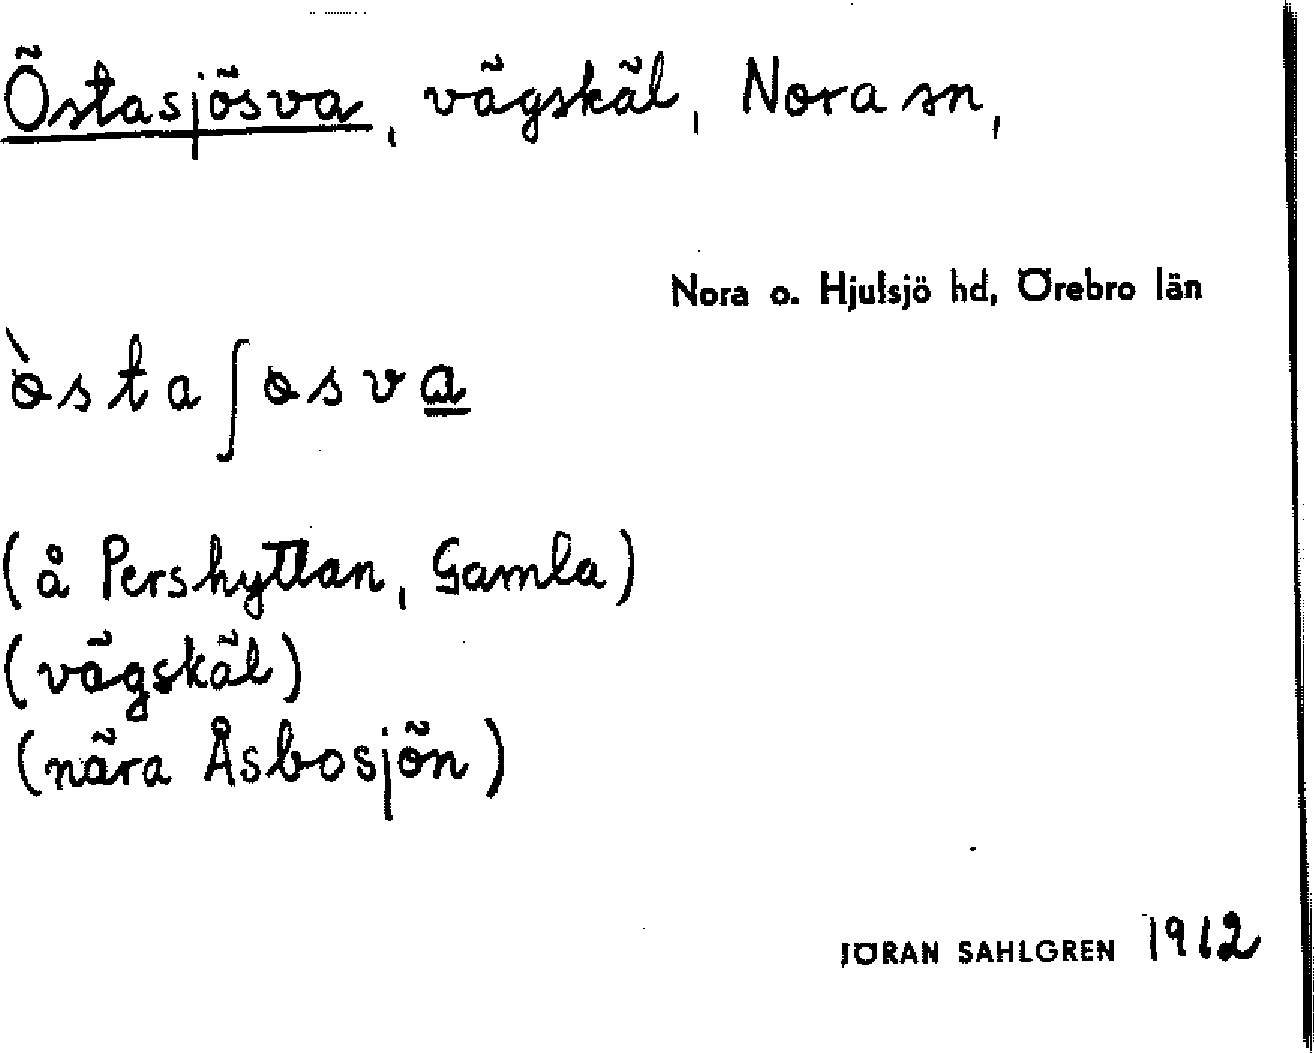 Östasjösva, vägskäl, Nora sn,
Nora o. Hjulsjö hd, Örebro län
ɵ̀staʃɵsva
(å Pershyttan, Gamla)
(vägskäl)
(nära Åsbosjön)
JÖRAN SAHLGREN 1912